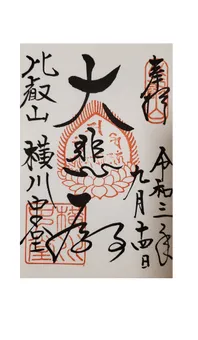 奉拝
令和三年
九月十四日
大悲殿
比叡山
横川中堂